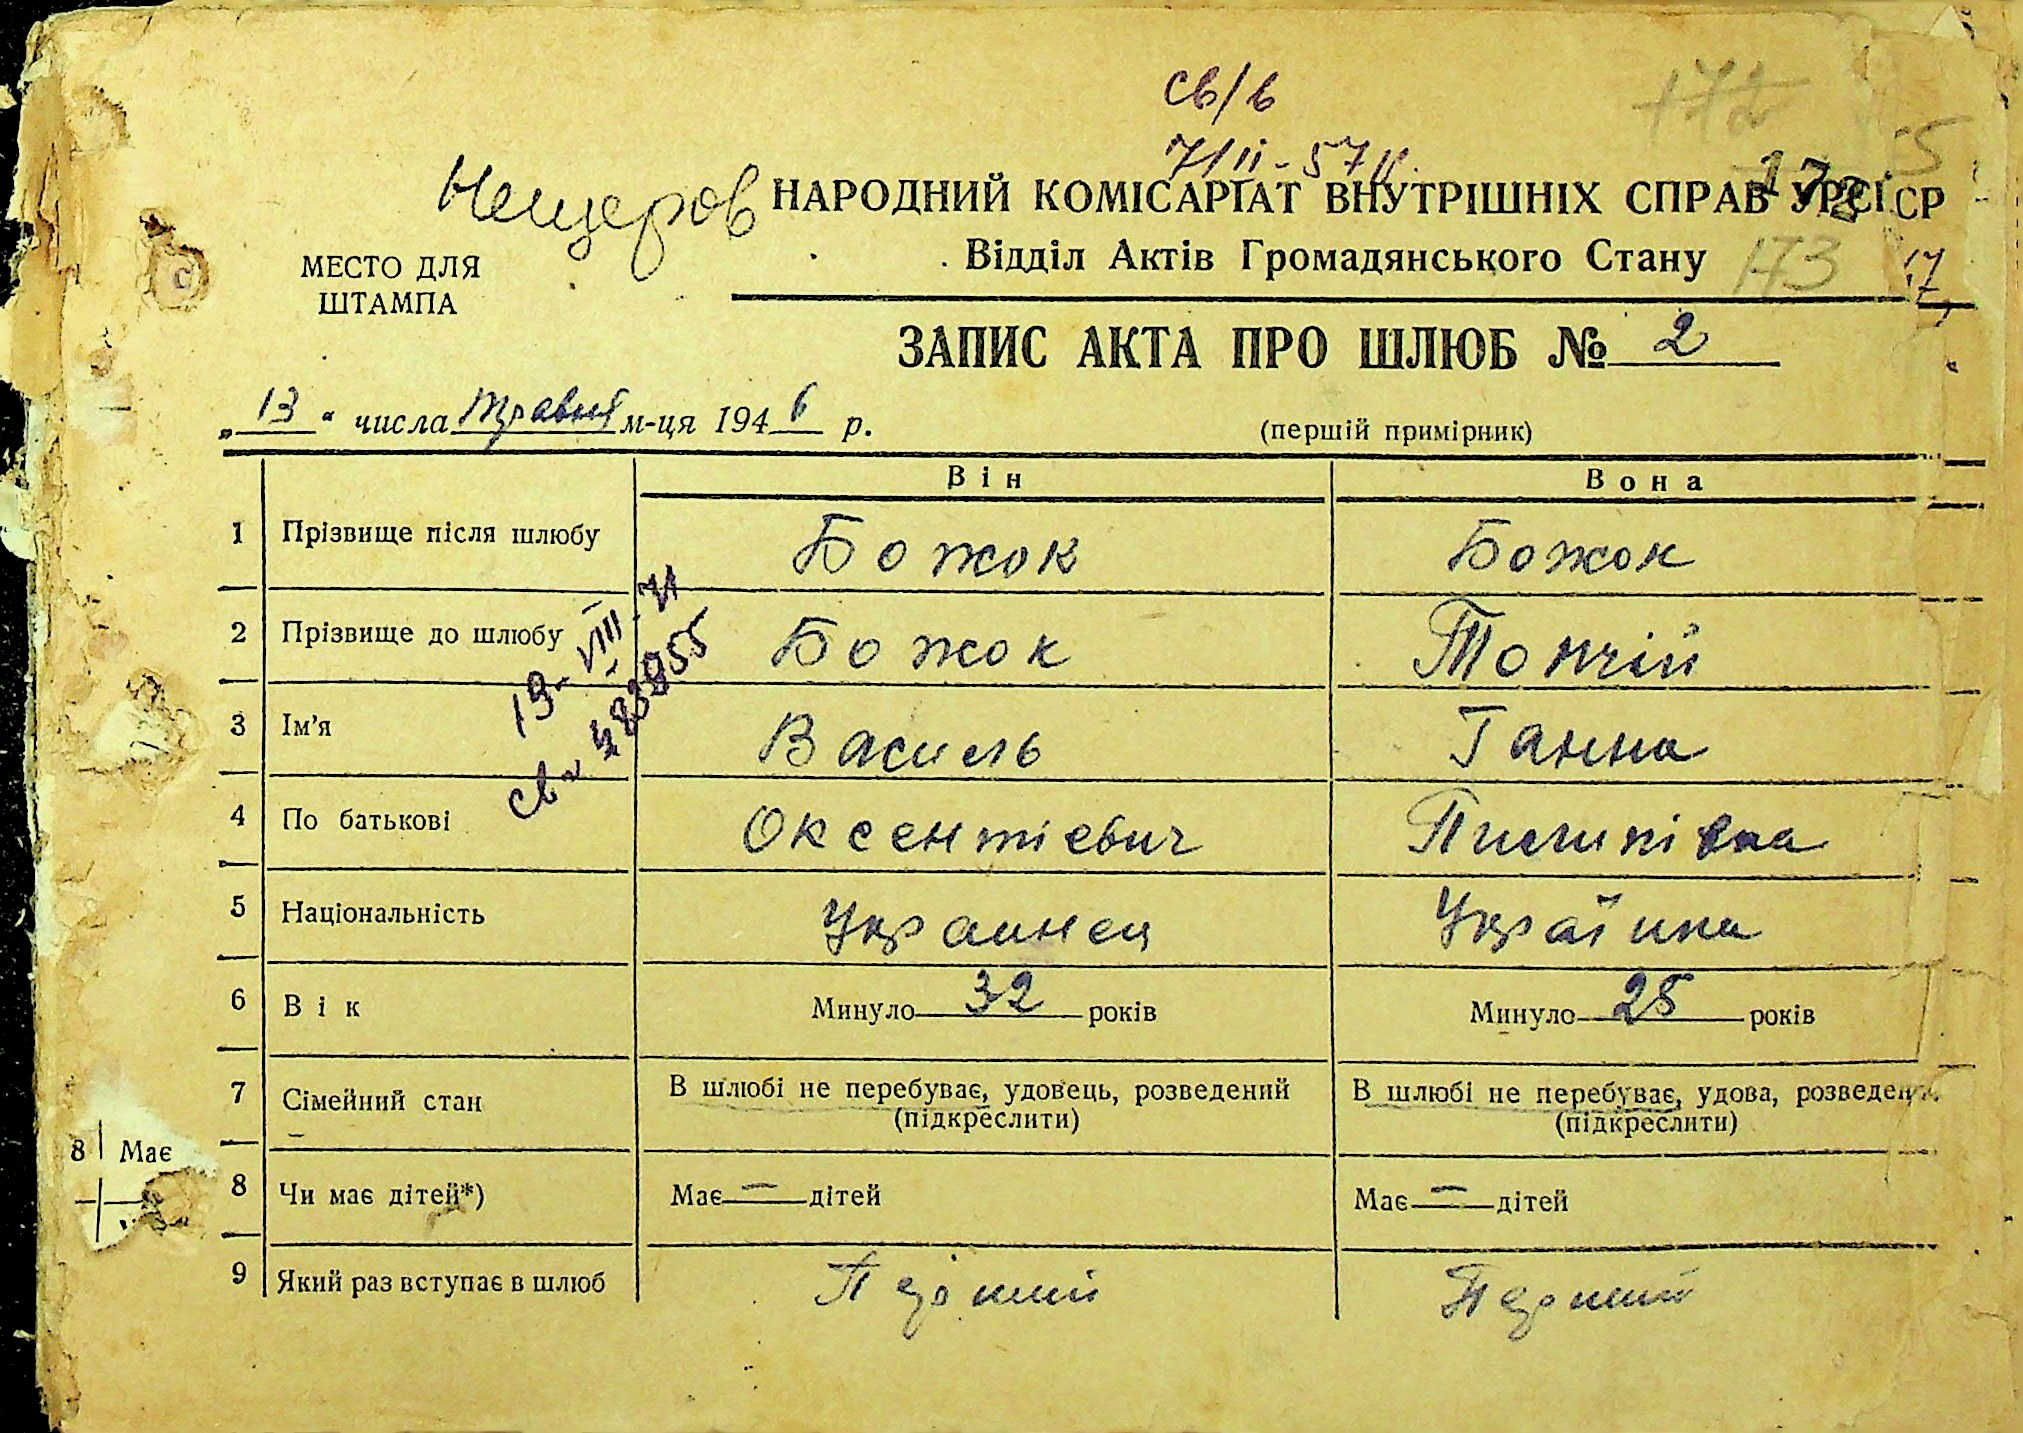 св/в
172
7/II-57 р.
5
Нещеров
НАРОДНИЙ КОМІСАРІАТ ВНУТРІШНІХ СПРАВ УРСР
173
Відділ Актів Громадянського Стану
17
МЕСТО ДЛЯ
ШТАМПА
ЗАПИС АКТА ПРО ШЛЮБ № 2
„13“ числа травня м-ця 1946 р.
(першій примірник)
Він Вона
1 Прізвище після шлюбу Божок Божок
2 Прізвище до шлюбу Божок Топчій
19-VIII-71
3 Ім'я Василь Ганна
4 По батькові Оксентієвич Пилипівна
5 Національність Украинец Українка
6 Вік Минуло 32 років Минуло 25 років
7 Сімейний стан В шлюбі не перебуває, удовець, розведений В шлюбі не перебуває, удова, розведен
(підкреслити) (підкреслити)
8 Має
8 Чи має дітей*) Має — дітей Має — дітей
9 Який раз вступає в шлюб Перший Перший